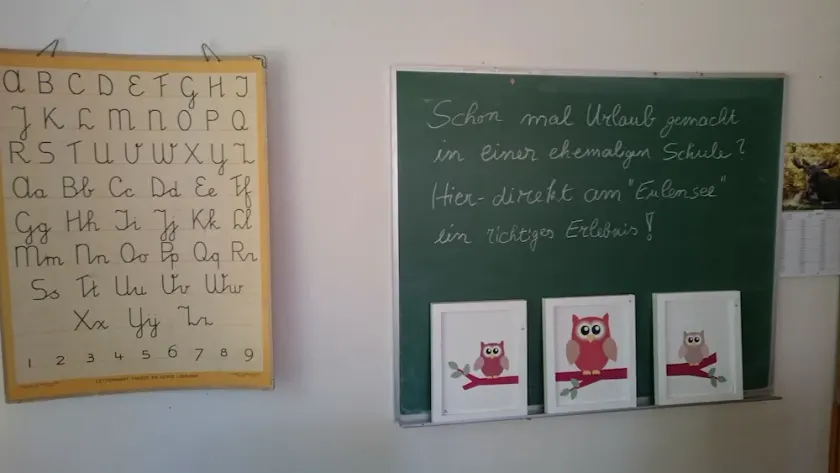 A B C D E F G H I
J K L M N O P Q
R S T U V W X Y Z
Aa Bb Cc Dd Ee Ff
Gg Hh Ii Jj Kk Ll
Mm Nn Oo Pp Qq Rr
Ss Tt Uu Vv Ww
Xx Yy Zz
1 2 3 4 5 6 7 8 9
Schon mal Urlaub gemacht
in einer ehemaligen Schule?
Hier-direkt am "Eulensee"
ein richtiges Erlebnis!